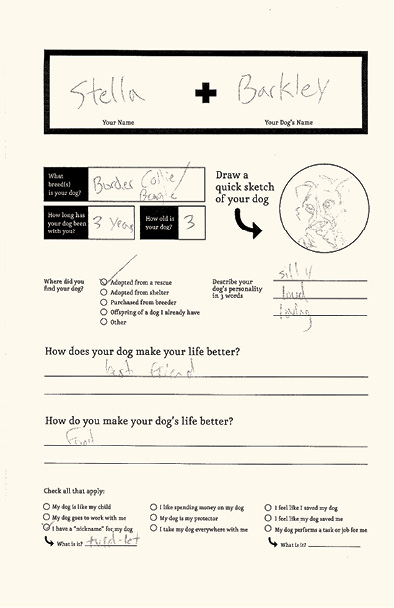 Stella + Barkley
Your Name
Your Dog's Name
What breed(s) is your dog?
Border Collie/
Beagle
How long has your dog been with you?
3 Years
How old is your dog?
3
Draw a
quick sketch
of your dog
Where did you
find your dog?
Adopted from a rescue
Adopted from shelter
Purchased from breeder
Offspring of a dog I already have
Other
Describe your
dog's personality
in 3 words
silly
loud
loving
How does your dog make your life better?
best friend
How do you make your dog's life better?
Food
Check all that apply:
My dog is like my child
My dog goes to work with me
I have a "nickname" for my dog
What is it? turd-let
I like spending money on my dog
My dog is my protector
I take my dog everywhere with me
I feel like I saved my dog
I feel like my dog saved me
My dog performs a task or job for me
What is it?